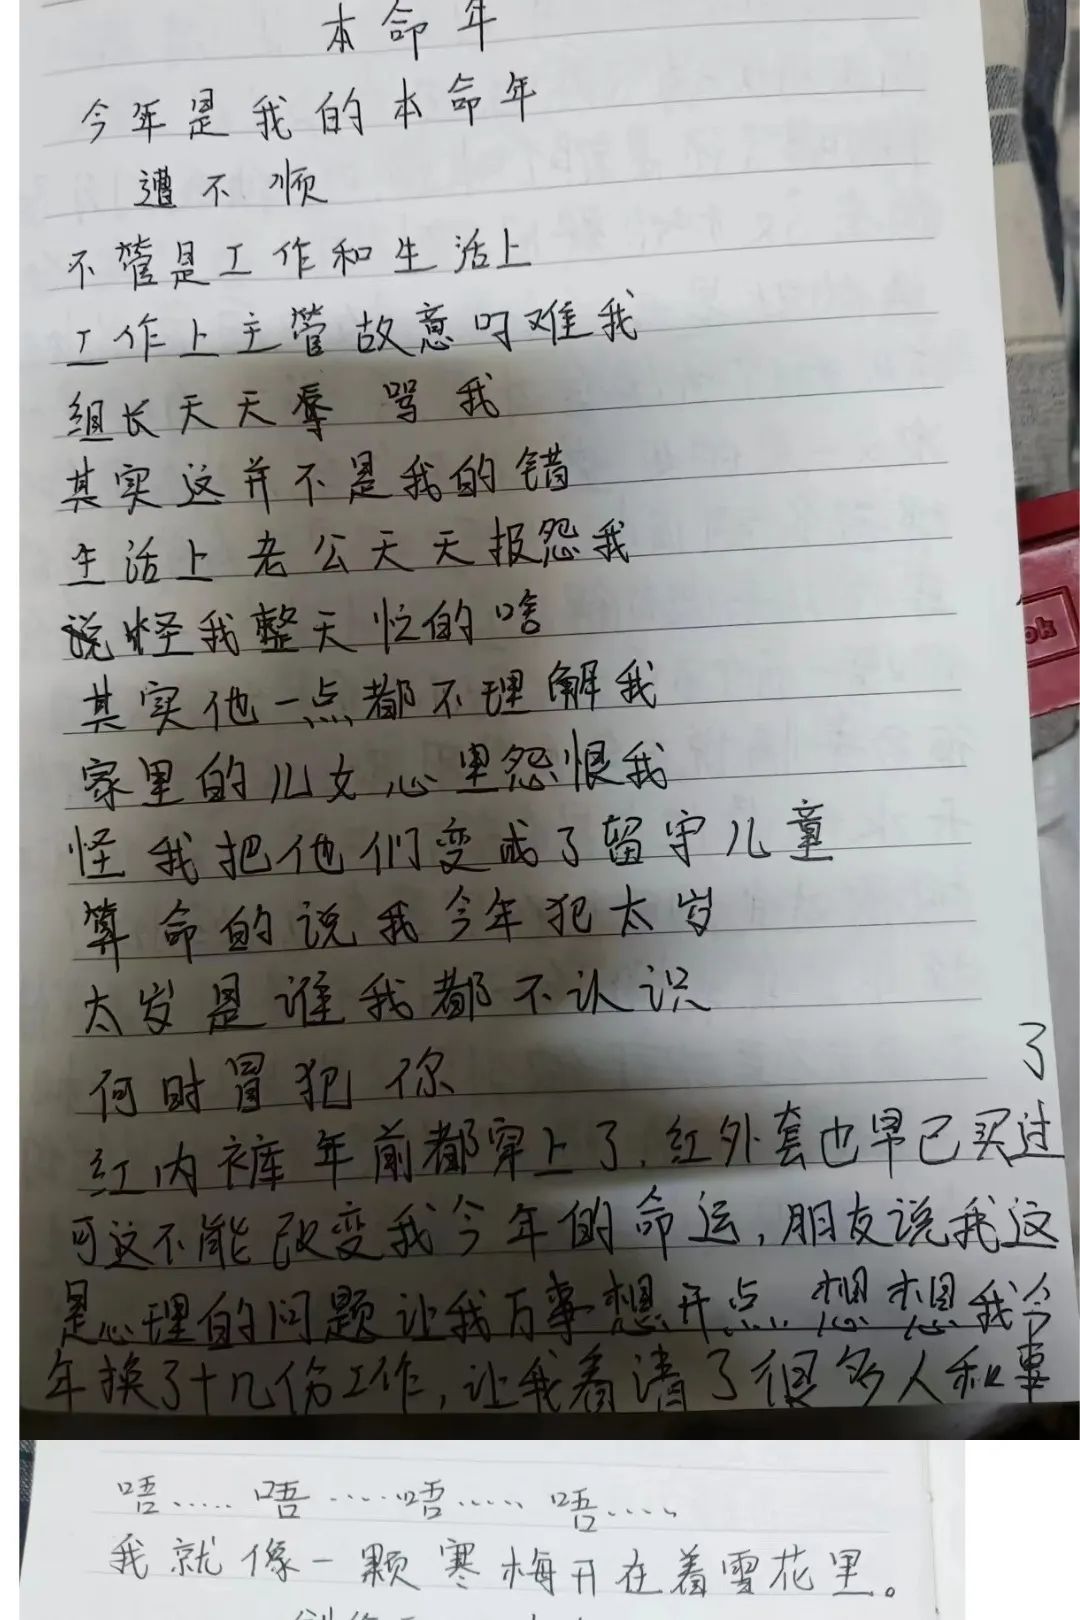 本命年
今年是我的本命年
遭不顺
不管是工作和生活上
工作上主管故意叼难我
组长天天辱骂我
其实这并不是我的错
生活上老公天天报怨我
说怪我整天忙的啥
其实他一点都不理解我
家里的儿女心里怨恨我
怪我把他们变成了留守儿童
算命的说我今年犯太岁
太岁是谁我都不认识
何时冒犯你
了
红内裤年前都穿上了，红外套也早已买过
可这不能改变我今年的命运，朋友说我这
是心理的问题让我万事想开点 想想我今
年换了十几份工作，让我看清了很多人和事
唔.....唔.....唔.....唔....
我就像一颗寒梅开在着雪花里。